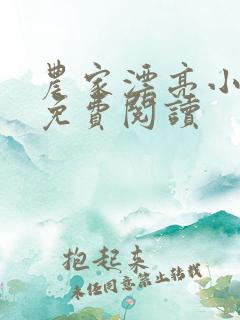 農家漂亮小
免費閱讀
抱起来
未经同意禁止转载